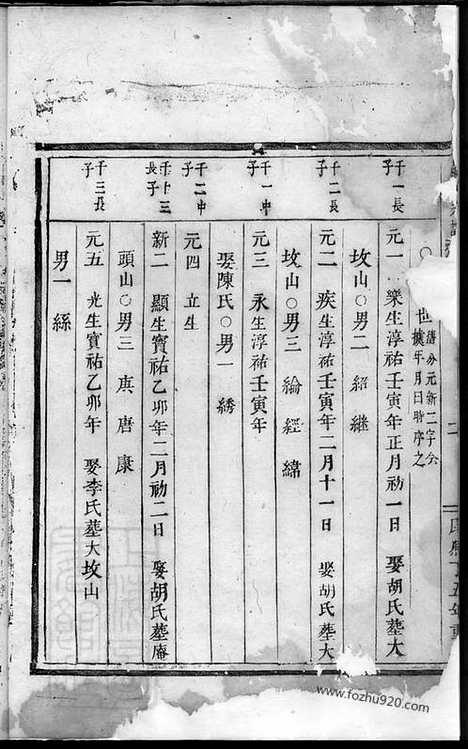 世
譜分元新二字公
據年月日時序之
千一長子
元一 樂生淳祐壬寅年正月初一日 娶胡氏墓大
坟山○男二 紹 繼
千二長子
元二 疾生淳祐壬寅年二月十一日 娶胡氏墓大
坟山○男三 綸 經 緯
千一中子
元三 永生淳祐壬寅年
娶陳氏○男一 綉
千二中子
元四 立生
千十三長子
新二 顯生寶祐乙卯年二月初二日 娶胡氏墓庵
頭山○男三 庚 唐 康
千三長子
元五 光生寶祐乙卯年 娶李氏墓大坟山
男一 絲
二
www.fozhu920.com